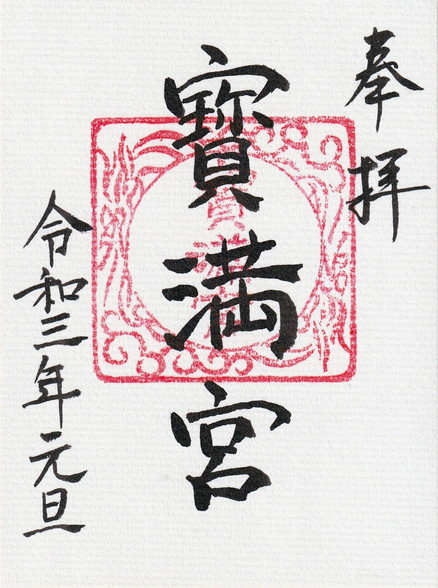 奉拝
寳満宮
令和三年元旦